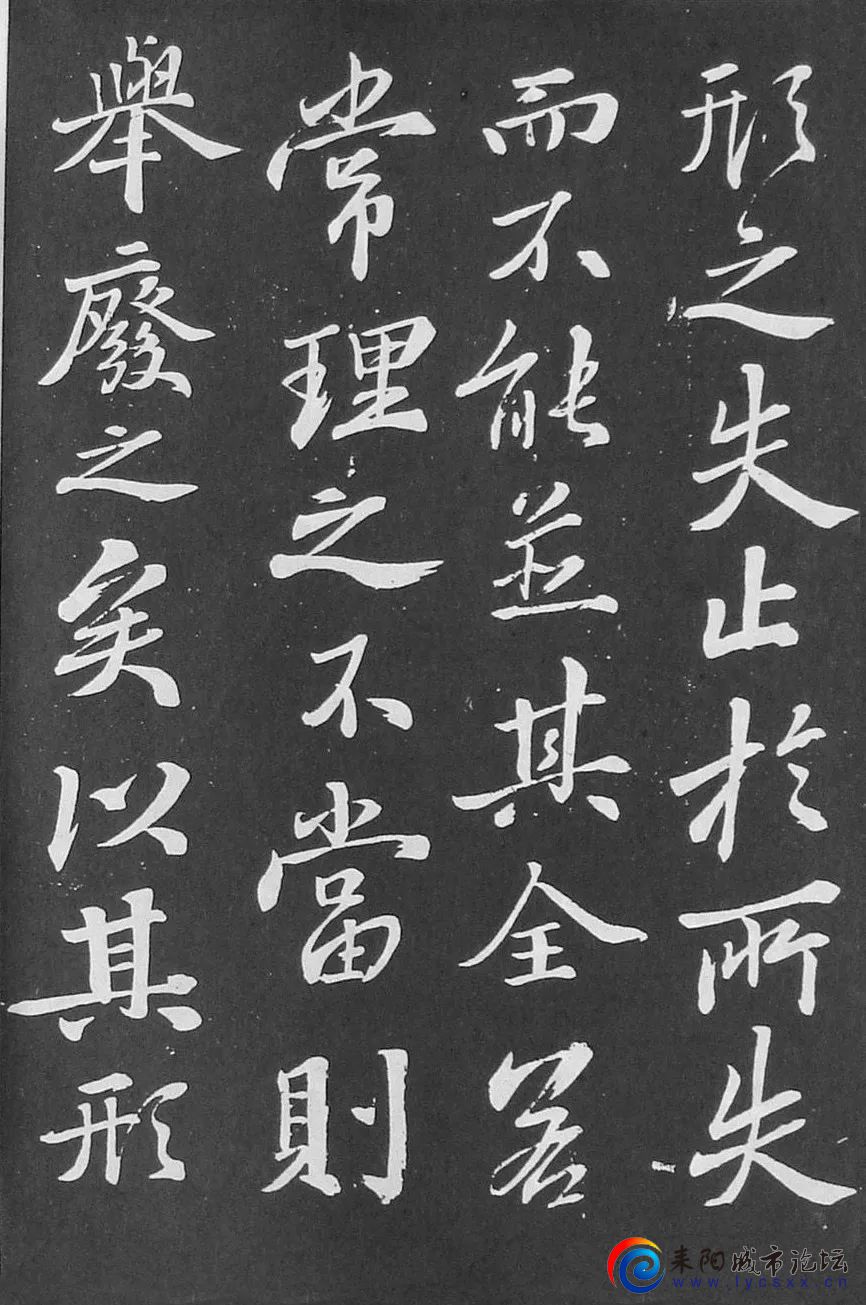 形之失止於所失
而不能並其全若
常理之不當則
舉廢之矣以其形
耒阳城市论坛
www.lycsxx.cn